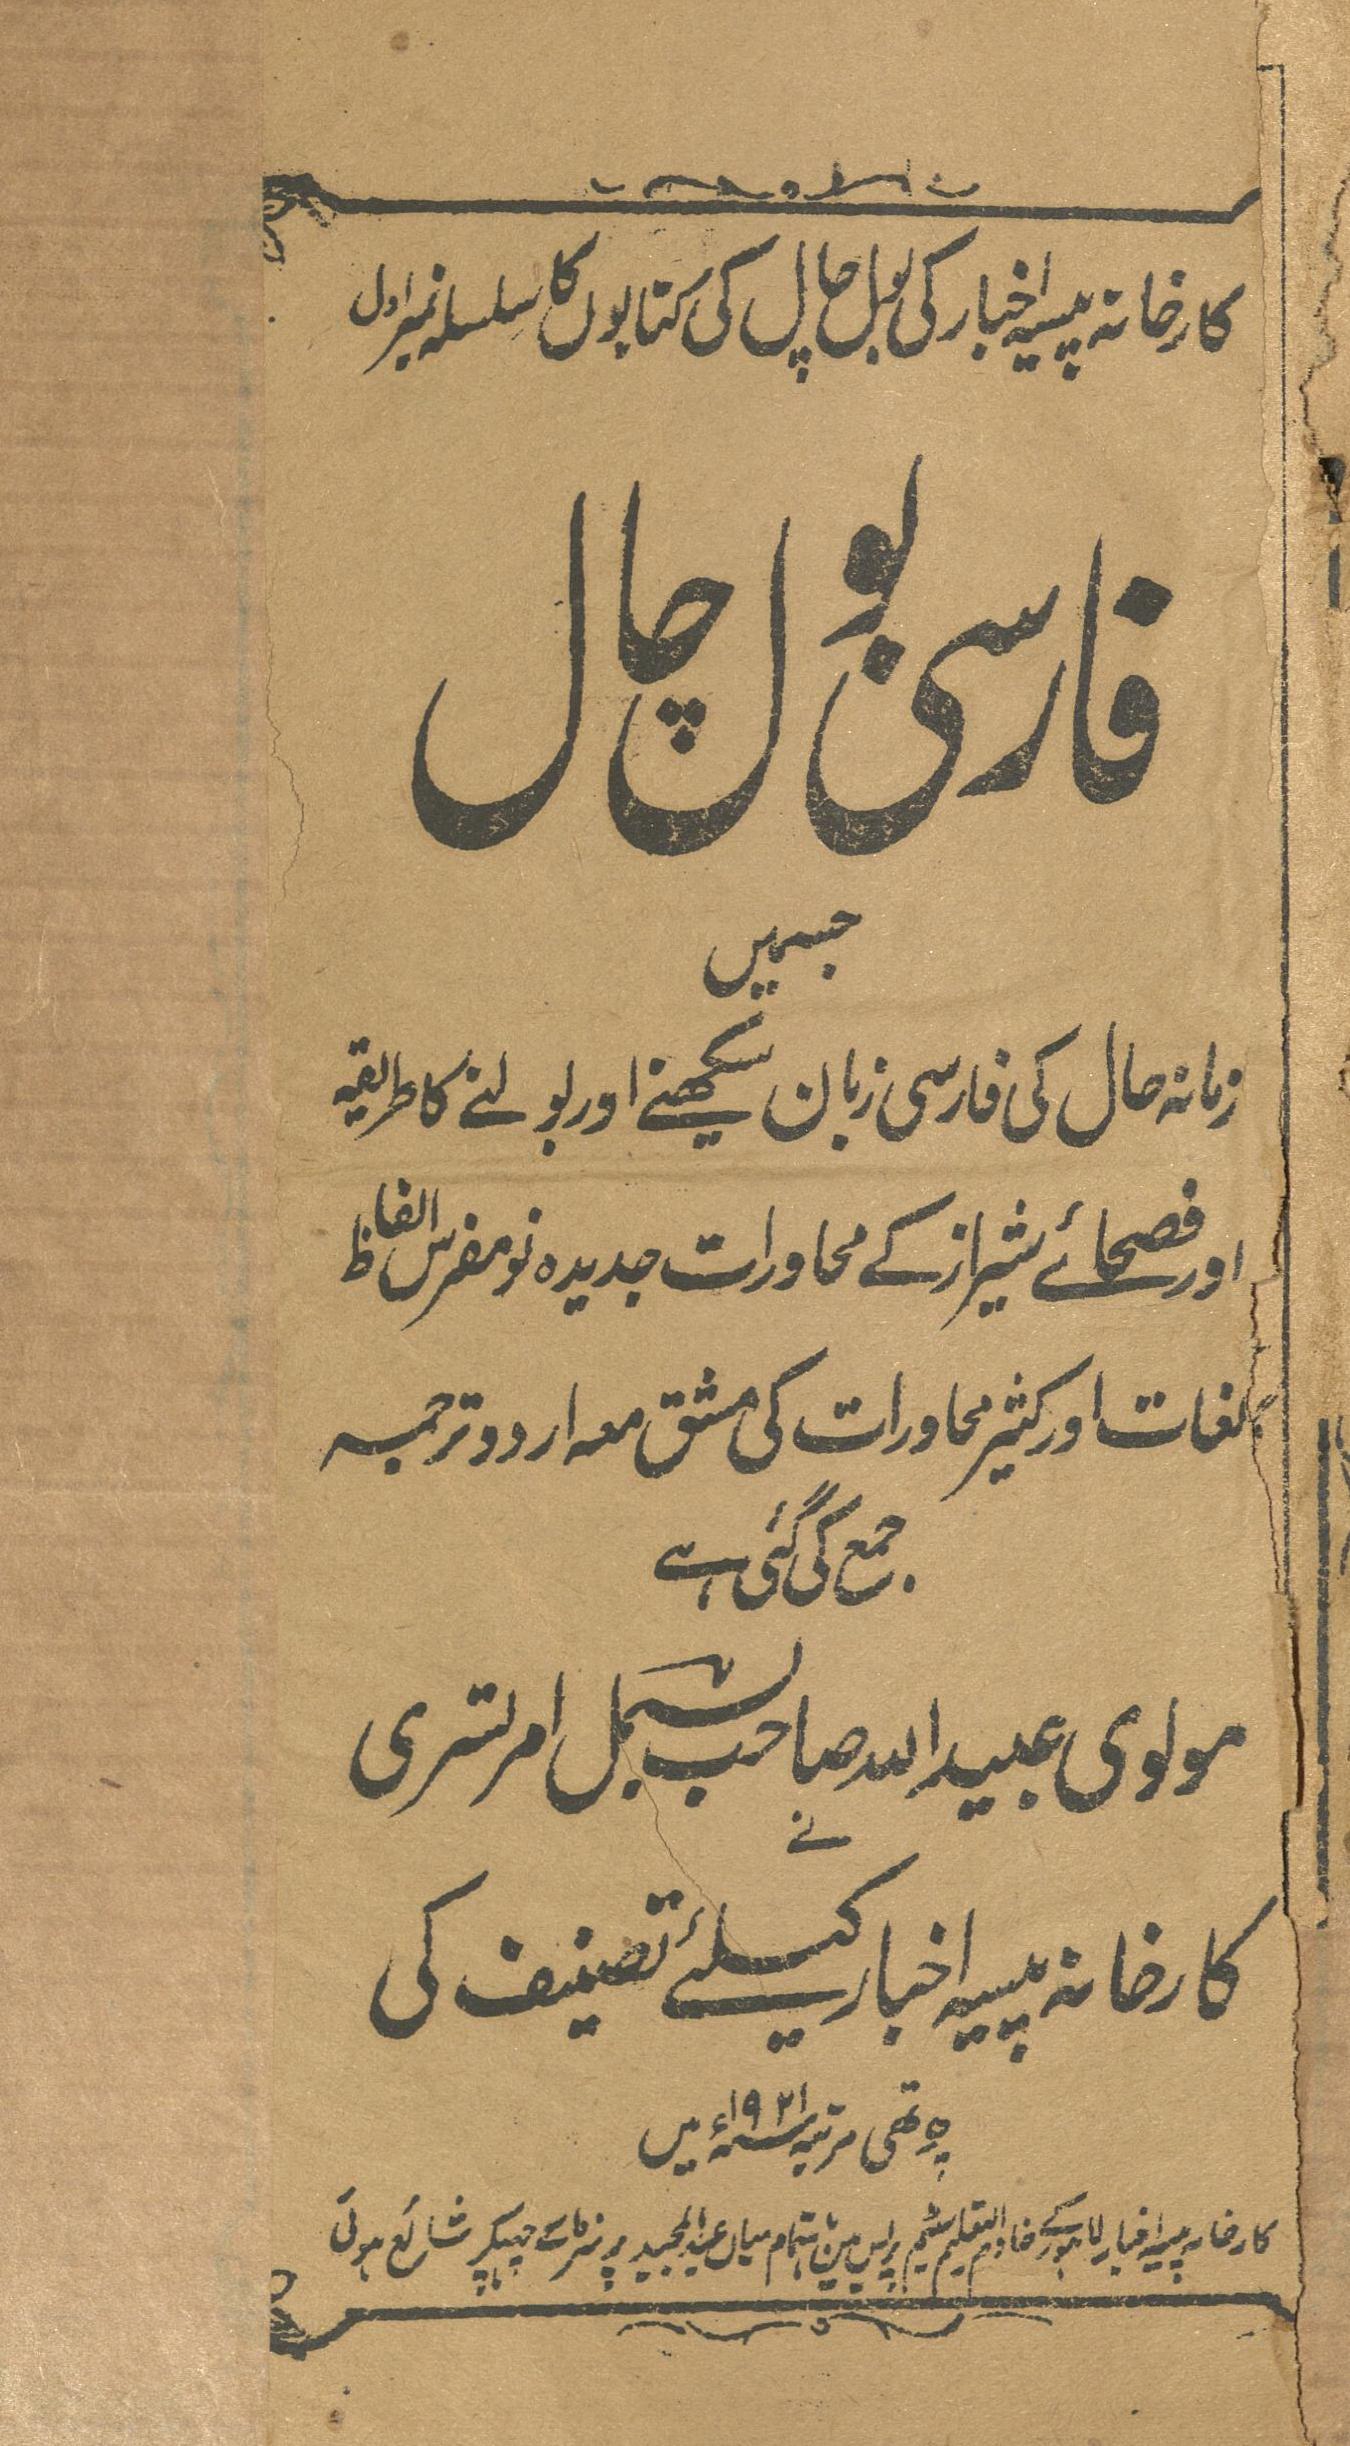 کارخانہ پیسہ اخبار کی بول چال کی کتابوں کا سلسلہ نمبر اول
فارسی بول چال
جسمیں
زمانہ حال کی فارسی زبان سیکھنے اور بولنے کا طریقہ
اور فصحائے شیراز کے محاورات جدیدہ نو مفرس الفاظ
لغات اور کثیر محاورات کی مشق معہ اردو ترجمہ
جمع کی گئی ہے
مولوی عبیداللہ صاحب بسمل امرتسری
نے
کارخانہ پیسہ اخبار کیلئے تصنیف کی
چوتھی مرتبہ ۱۹۲۱ء میں
کارخانہ پیسہ اخبار لاہور کے خادم التعلیم سٹیم پریس میں باہتمام میاں عبدالمجید پرنٹر کے چھپکر شائع ہوئی